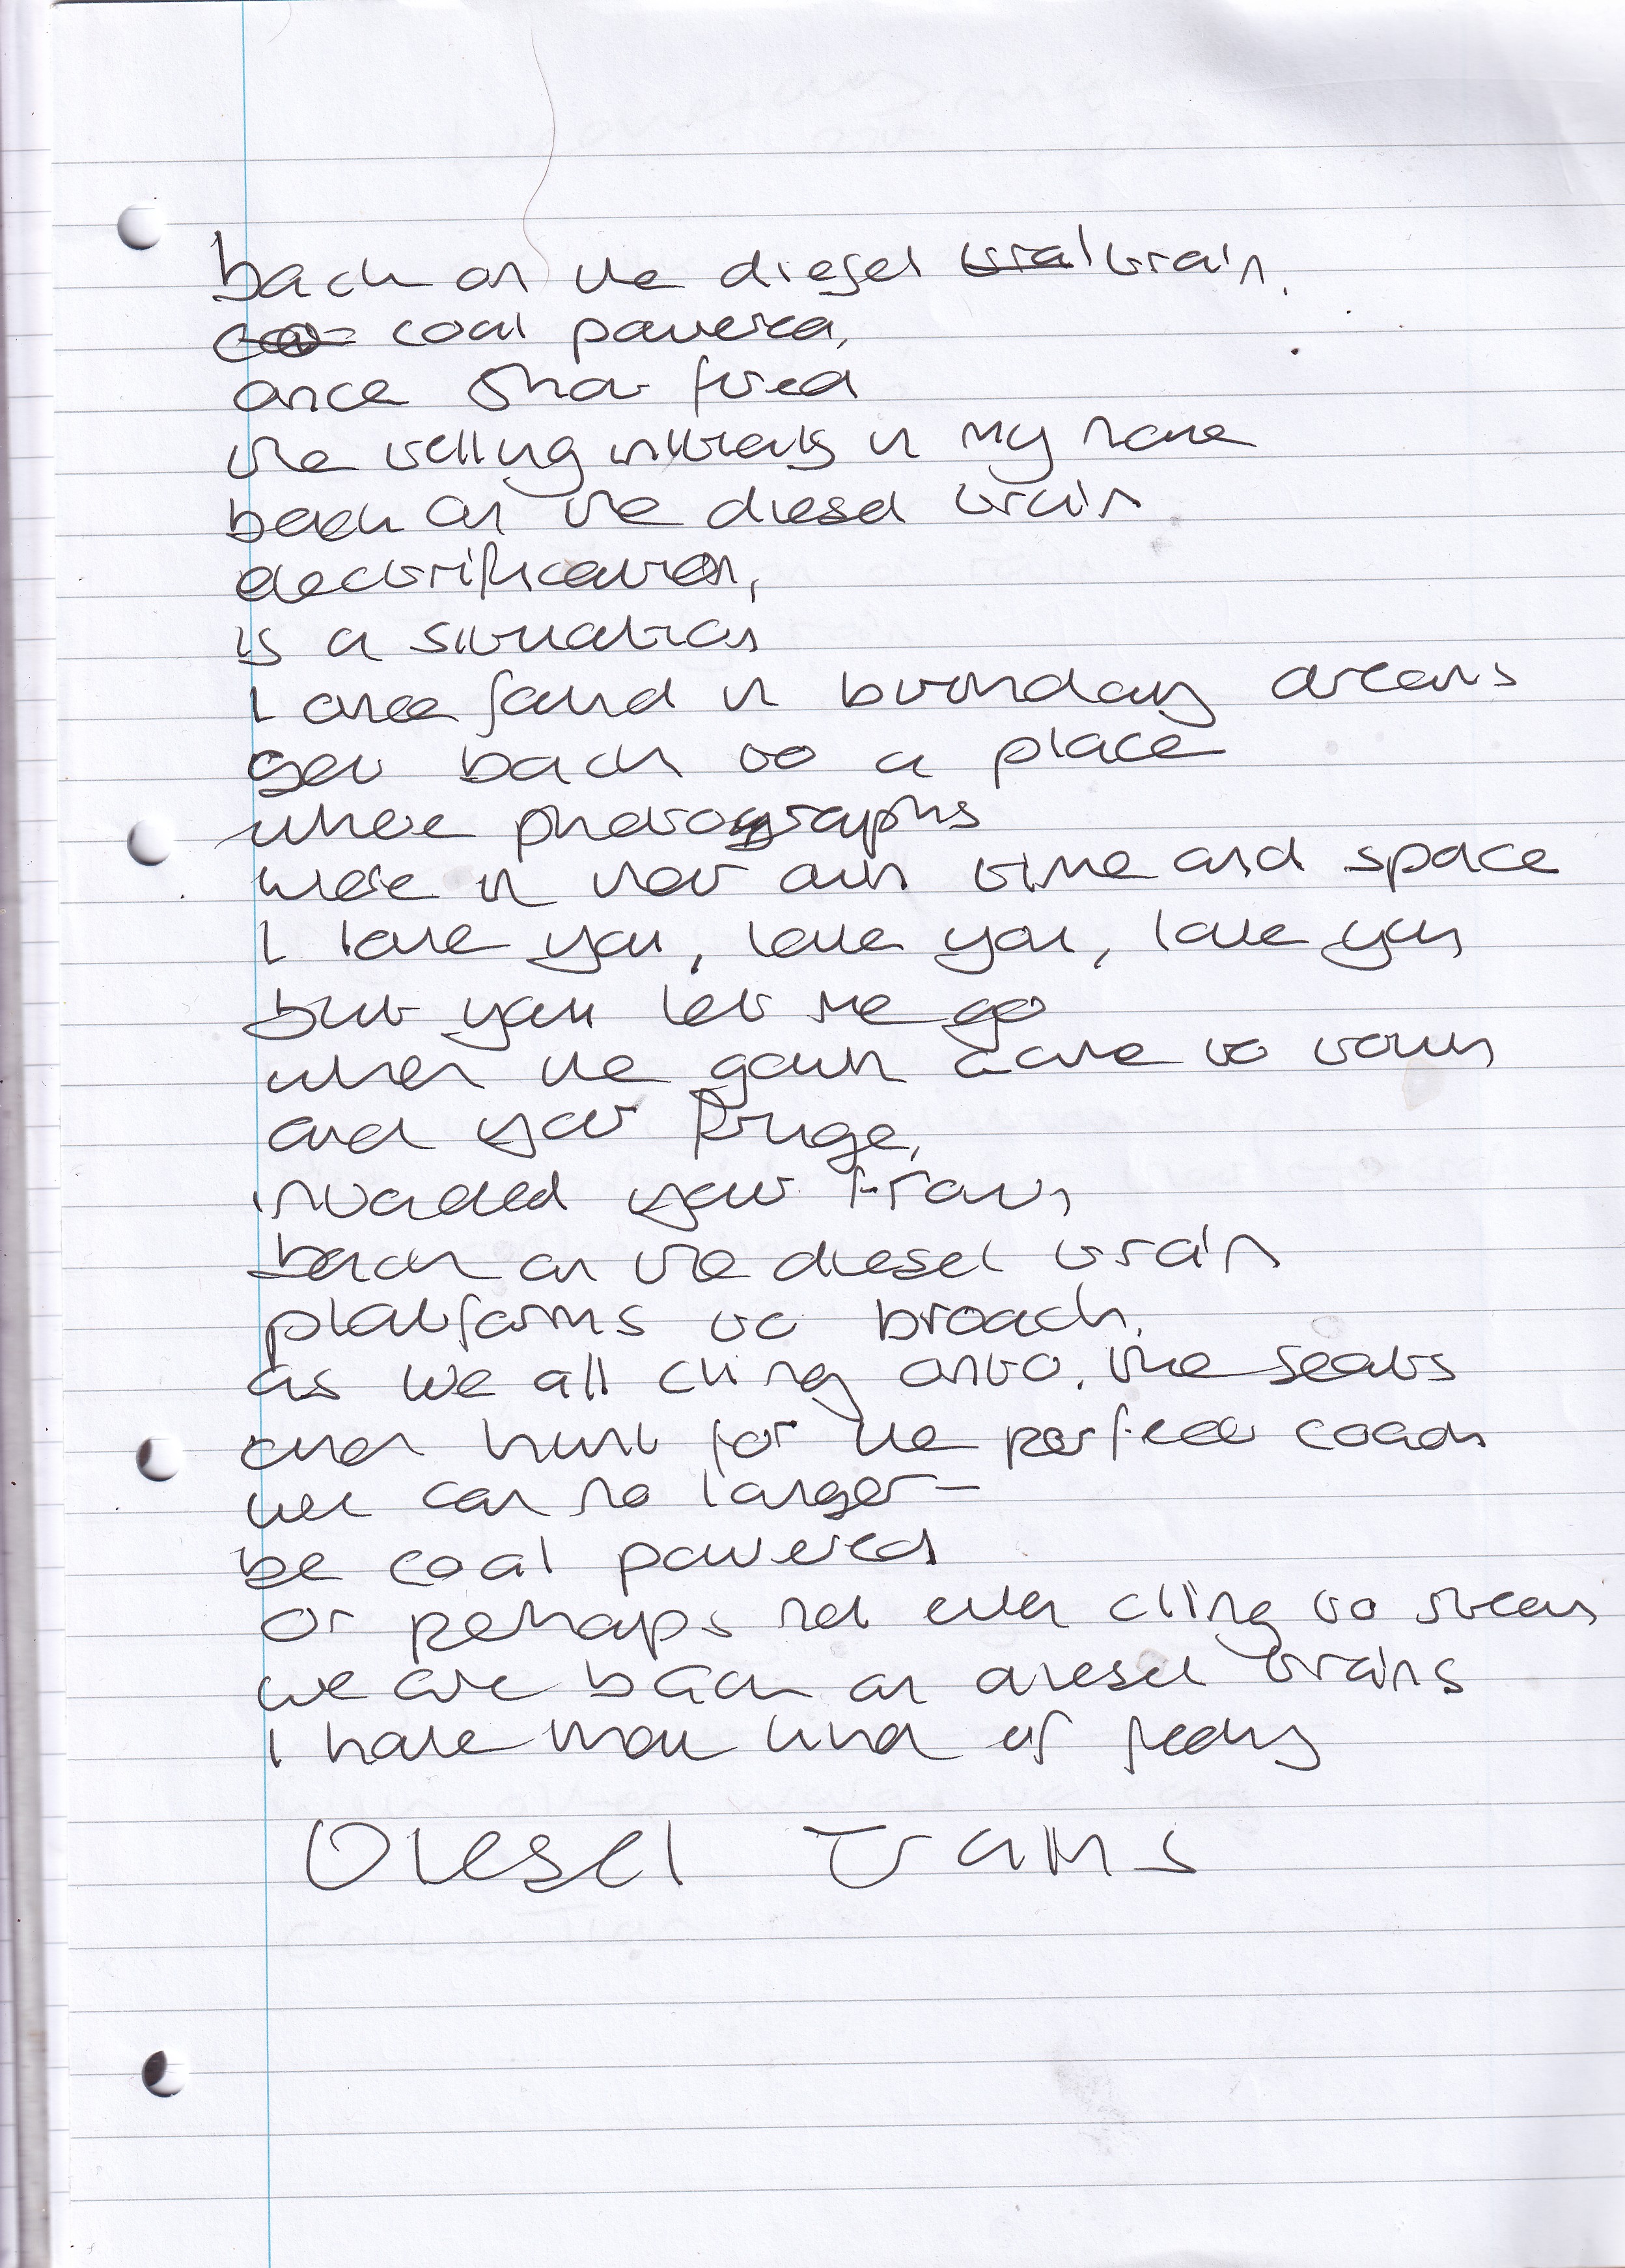 back on the diesel train.
coal powered,
once shot fired
the telling intervals in my name
back on the diesel train
electrification,
is a situation
I once found in birthday dreams
get back to a place
where photographs
were in their own time and space
I love you, love you, love you
but you let me go
when the goth came to town
and your fringe,
invaded your frown
back on the diesel train
platforms to broach.
as we all cling onto. the seats
and hunt for the perfect coach
we can no longer -
be coal powered
or perhaps not even cling to steam
we are back on diesel trains
I have that kind of feeling
Diesel Trains